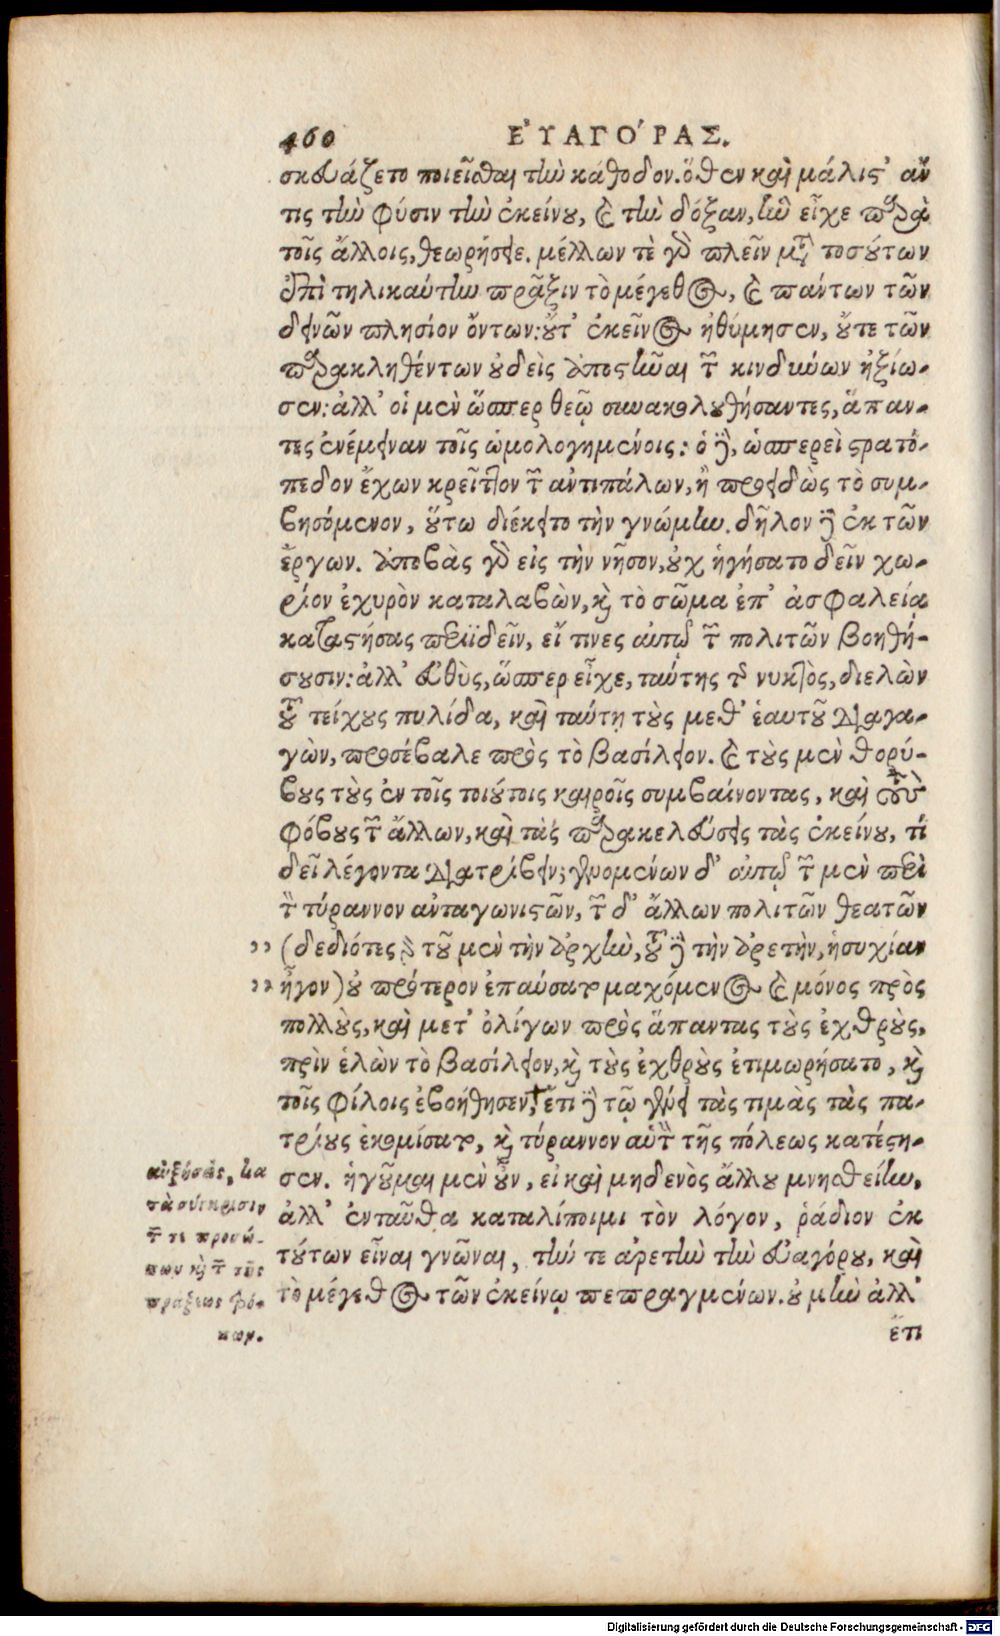 460 ΕὐΑΓΌΡΑΣ.
σκευάζετο ποιεῖσθαι τὴν κάθοδον. ὅθεν καὶ μάλιστ' ἄν
τις τὴν φύσιν τὴν ἐκείνου, καὶ τὴν δόξαν, ἣν εἶχε παρὰ
τοῖς ἄλλοις, θεωρήσειε. μέλλων τὲ γὰρ πλεῖν μετὰ τοσούτων
ἐπὶ τηλικαύτην πρᾶξιν τὸ μέγεθος, καὶ πάντων τῶν
δεινῶν πλησίον ὄντων: οὔτ' ἐκεῖνος ἠθύμησεν, οὔτε τῶν
παρακληθέντων οὐδεὶς ἀποστῆναι τῶν κινδύνων ἠξίω-
σεν: ἀλλ' οἱ μὲν ὥσπερ θεῷ συνακολουθήσαντες, ἅπαν-
τες ἐνέμειναν τοῖς ὡμολογημένοις: ὁ δὲ, ὡσπερεὶ στρατό-
πεδον ἔχων κρεῖττον τῶν ἀντιπάλων, ἢ προειδὼς τὸ συμ-
βησόμενον, οὕτω διέκειτο τὴν γνώμην. δῆλον δὲ ἐκ τῶν
ἔργων. ἀποβὰς γὰρ εἰς τὴν νῆσον, οὐχ ἡγήσατο δεῖν χω-
ρίον ἐχυρὸν καταλαβὼν, καὶ τὸ σῶμα ἐπ' ἀσφαλείᾳ
καταστήσας περιϊδεῖν, εἴ τινες αὐτῷ τῶν πολιτῶν βοηθή-
σουσιν: ἀλλ' εὐθὺς, ὥσπερ εἶχε, ταύτης τῆς νυκτὸς, διελὼν
τοῦ τείχους πυλίδα, καὶ ταύτῃ τοὺς μεθ' ἑαυτοῦ διαγα-
γὼν, προσέβαλε πρὸς τὸ βασίλειον. καὶ τοὺς μὲν θορύ-
βους τοὺς ἐν τοῖς τοιούτοις καιροῖς συμβαίνοντας, καὶ τοὺς
φόβους τῶν ἄλλων, καὶ τὰς παρακελεύσεις τὰς ἐκείνου, τί
δεῖ λέγοντα διατρίβειν; γενομένων δ' αὐτῷ τῶν μὲν περὶ
τὸν τύραννον ἀνταγωνιστῶν, τῶν δ' ἄλλων πολιτῶν θεατῶν
,, (δεδιότες γὰρ τοῦ μὲν τὴν ἀρχὴν, τοῦ δὲ τὴν ἀρετὴν, ἡσυχίαν
,, ἦγον) οὐ πρότερον ἐπαύσατο μαχόμενος καὶ μόνος πρὸς
πολλοὺς, καὶ μετ' ὀλίγων πρὸς ἅπαντας τοὺς ἐχθροὺς,
πρὶν ἑλὼν τὸ βασίλειον, καὶ τοὺς ἐχθροὺς ἐτιμωρήσατο, καὶ
τοῖς φίλοις ἐβοήθησεν,† ἔτι δὲ τῷ γένει τὰς τιμὰς τὰς πα-
τρίους ἐκομίσατο, καὶ τύραννον αὑτὸν τῆς πόλεως κατέστη-
σεν. ἡγοῦμαι μὲν οὖν, εἰ καὶ μηδενὸς ἄλλου μνησθείην,
ἀλλ' ἐνταῦθα καταλίποιμι τὸν λόγον, ῥᾴδιον ἐκ
τούτων εἶναι γνῶναι, τήν τε ἀρετὴν τὴν Εὐαγόρου, καὶ
τὸ μέγεθος τῶν ἐκείνῳ πεπραγμένων. οὐ μὴν ἀλλ'
ἔτι
αὔξησις, κα
τὰ σύγκρισιν
τῶν τε προσώ-
πων καὶ τῶν τῆς
πράξεως τρό-
πων.
Digitalisierung gefördert durch die Deutsche Forschungsgemeinschaft - DFG